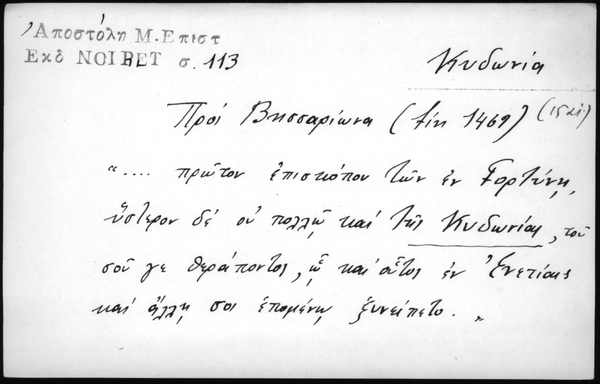 Ἀποστόλη Μ. Επιστ
Εκδ NOIRET σ. 113
Κυδωνία
Πρὸς Βησσαρίωνα ( 1469) (15 αἰ.)
".... πρῶτον ἐπισκόπου τῶν ἐν Γορτύνῃ,
ὕστερον δὲ οὐ πολλῷ καὶ τῆς Κυδωνίας, τοῦ
σοῦ γε θεράποντος, ᾧ καὶ αὐτὸς ἐν Ἐνετίαις
καὶ ἄλλῃ σοι ἑπομένῳ ξυνείπετο. "